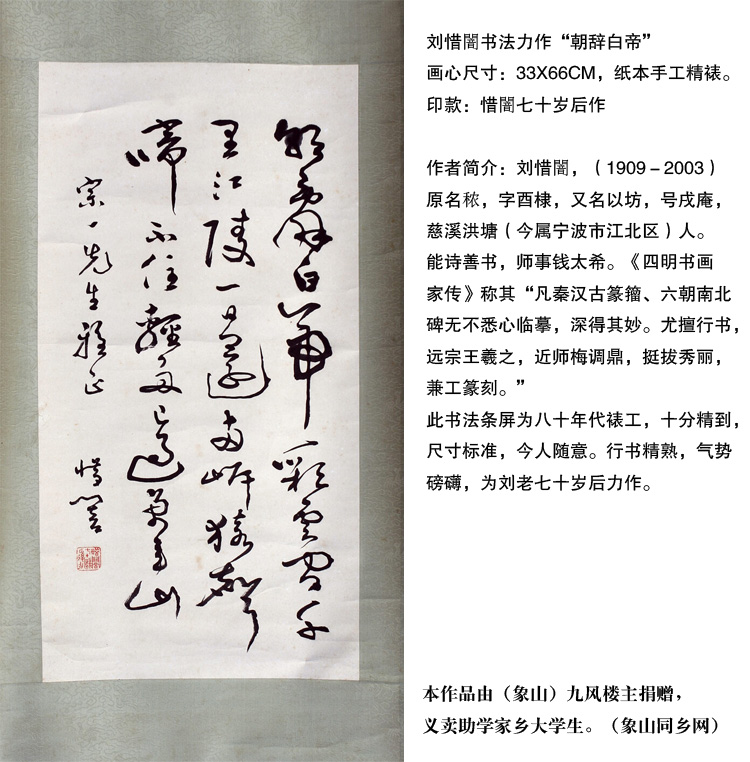 朝辭白帝彩雲間千
里江陵一日還兩岸猿聲
啼不住輕舟已過萬重山
宗一先生雅正
惜闇
刘惜闇书法力作“朝辞白帝”
画心尺寸：33X66CM，纸本手工精裱。
印款：惜闇七十岁后作
作者简介：刘惜闇，（1909－2003）
原名秾，字酉棣，又名以坊，号戌庵，
慈溪洪塘（今属宁波市江北区）人。
能诗善书，师事钱太希。《四明书画
家传》称其“凡秦汉古篆籀、六朝南北
碑无不悉心临摹，深得其妙。尤擅行书，
远宗王羲之，近师梅调鼎，挺拔秀丽，
兼工篆刻。”
此书法条屏为八十年代裱工，十分精到，
尺寸标准，今人随意。行书精熟，气势
磅礴，为刘老七十岁后力作。
本作品由（象山）九风楼主捐赠，
义卖助学家乡大学生。（象山同乡网）